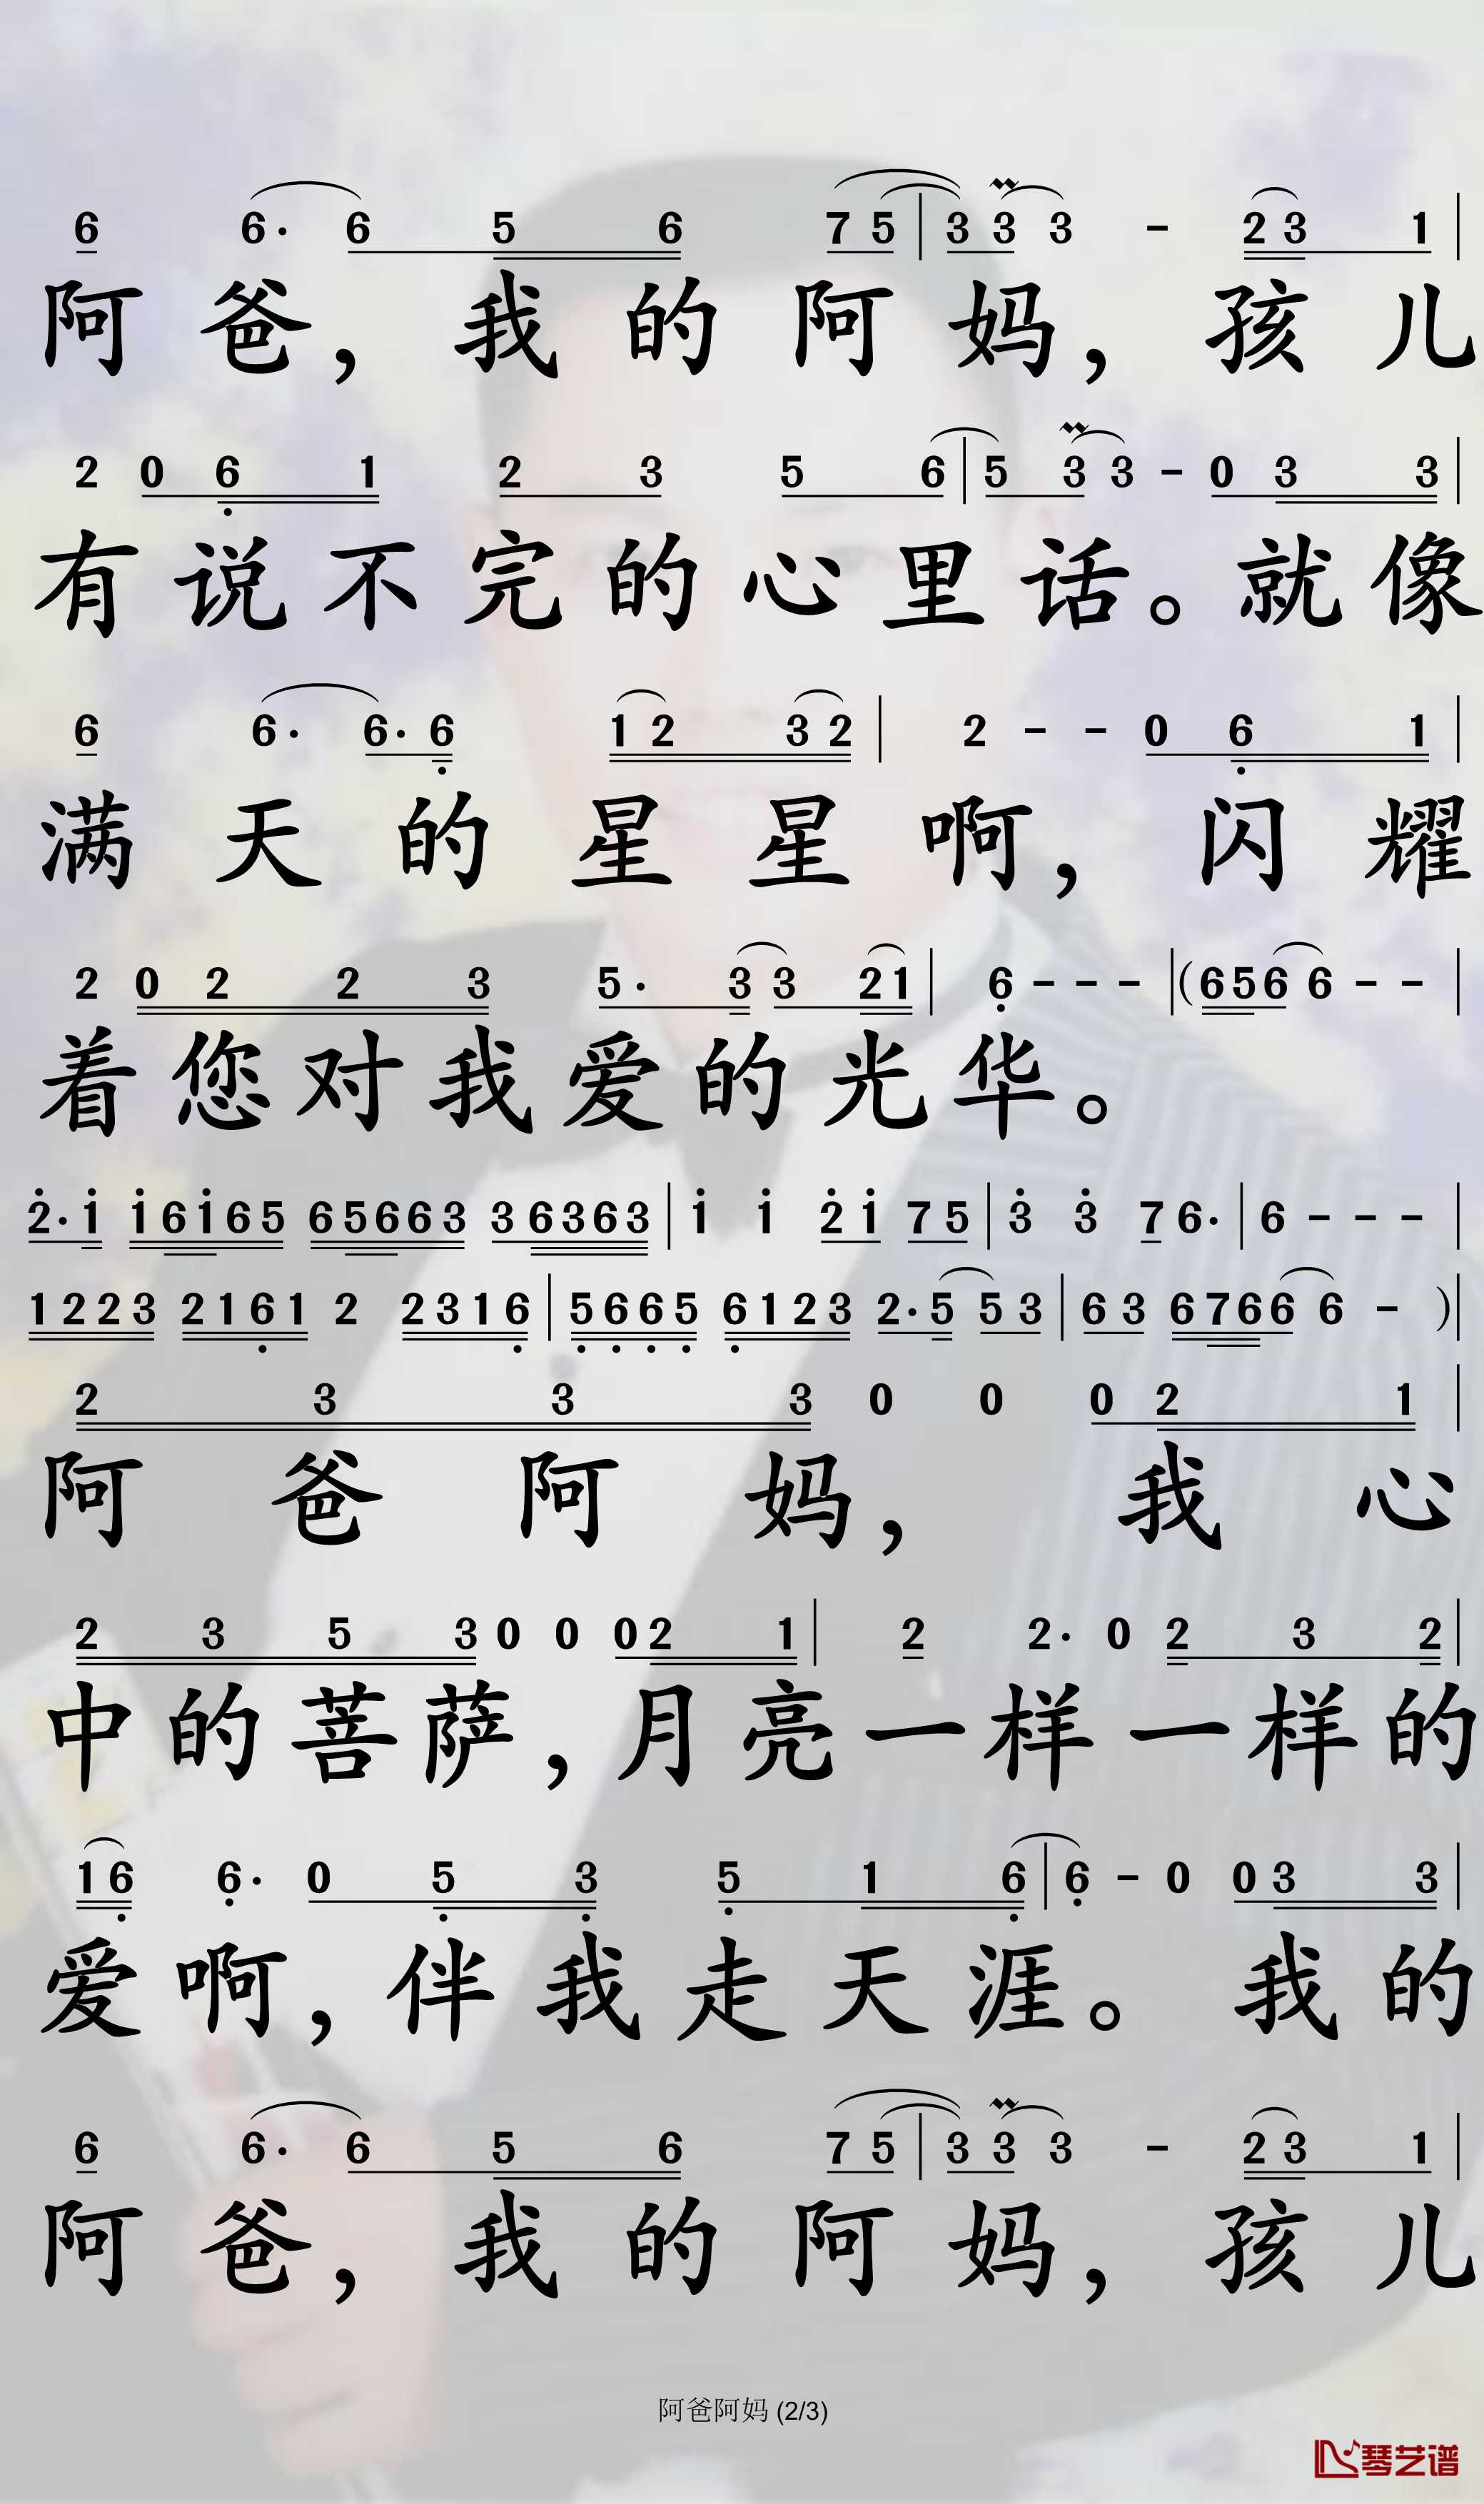 6 6· 6 5 6 7 5 | 3 3 3 - 2 3 1 |
阿爸，我的阿妈，孩儿
2 0 6 1 2 3 5 6 | 5 3 3 - 0 3 3 |
有说不完的心里话。就像
6 6· 6· 6 1 2 3 2 | 2 - - 0 6 1 |
满天的星星啊，闪耀
2 0 2 2 3 5· 3 3 2 1 | 6 - - - | (6 5 6 6 - - |
着您对我爱的光华。
2· 1 1 6 1 6 5 6 5 6 6 3 3 6 3 6 3 | 1 1 2 1 7 5 | 3 3 7 6· | 6 - - - |
1 2 2 3 2 1 6 1 2 2 3 1 6 | 5 6 6 5 6 1 2 3 2· 5 5 3 | 6 3 6 7 6 6 6 - ) |
2 3 3 3 0 0 0 2 1 |
阿爸阿妈，我心
2 3 5 3 0 0 0 2 1 | 2 2· 0 2 3 2 |
中的菩萨，月亮一样一样的
1 6 6· 0 5 3 5 1 6 | 6 - 0 0 3 3 |
爱啊，伴我走天涯。我的
6 6· 6 5 6 7 5 | 3 3 3 - 2 3 1 |
阿爸，我的阿妈，孩儿
阿爸阿妈 (2/3)
琴艺谱